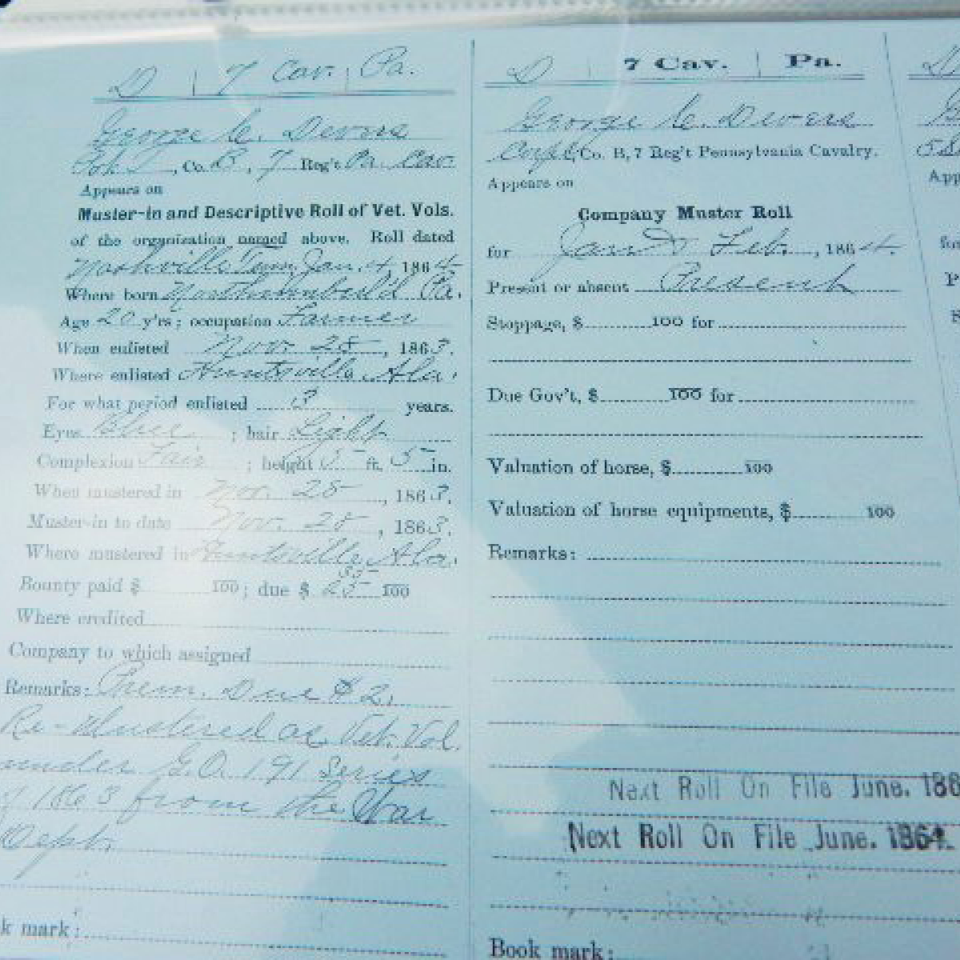 D | 7 Cav. | Pa.
George C. Devers
, Co. B, 7 Reg't Pa. Cav.
Appears on
Muster-in and Descriptive Roll of Vet. Vols.
of the organization named above. Roll dated
Nashville Tenn Jan. 4, 1864
Where born Northumberl'd Pa.
Age 20 y'rs; occupation Farmer
When enlisted Nov. 28, 1863.
Where enlisted Huntsville Ala.
For what period enlisted 3 years.
Eyes Blue ; hair Light
Complexion Fair ; height 5 ft. 5 in.
When mustered in Nov. 28, 1863.
Muster-in to date Nov. 28, 1863.
Where mustered in Huntsville Ala.
Bounty paid $ 100; due $ 25 100
Where credited
Company to which assigned
Remarks: Prem. Due $2.
Re-Mustered as Vet. Vol.
under G.O. 191 Series
of 1863 from the War
Dept.
k mark:
D | 7 Cav. | Pa.
George C. Devers
Corpl, Co. B, 7 Reg't Pennsylvania Cavalry.
Appears on
Company Muster Roll
for Jan & Feb., 1864.
Present or absent Present
Stoppage, $ 100 for
Due Gov't, $ 100 for
Valuation of horse, $ 100
Valuation of horse equipments, $ 100
Remarks:
Next Roll On File June. 186
Next Roll On File June. 1864.
Book mark:
D
G
App
for
P
S